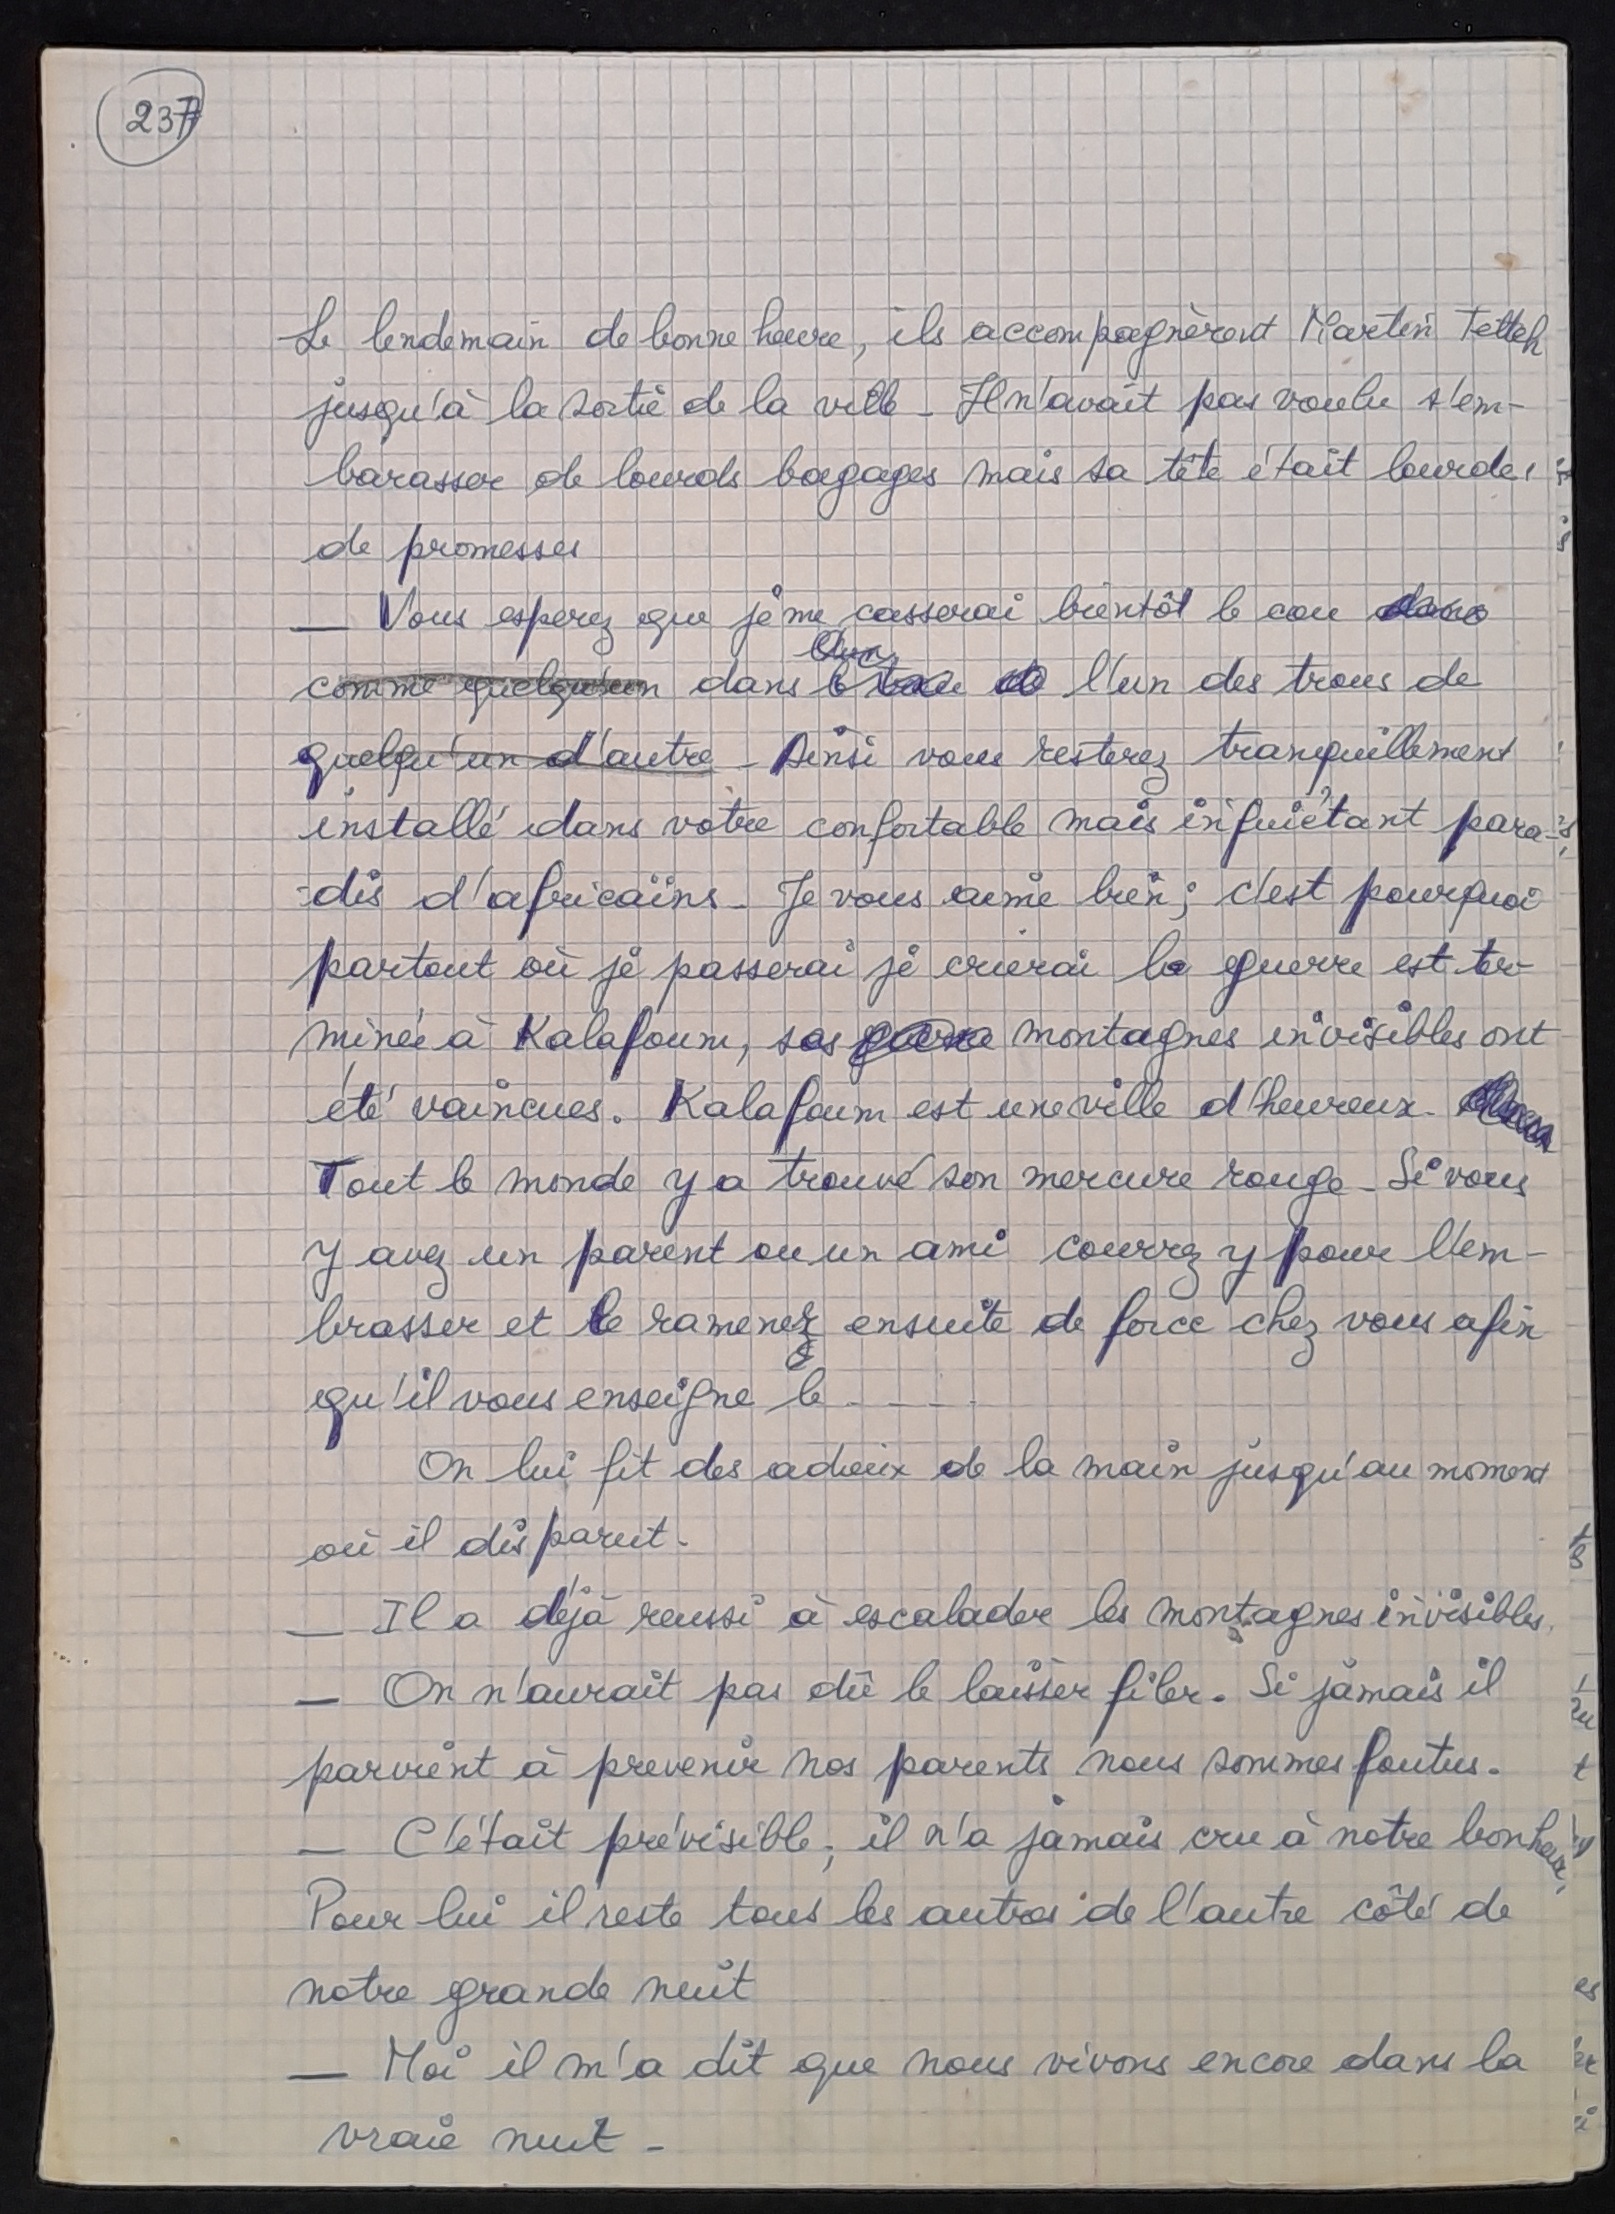 237
Le lendemain de bonne heure, ils accompagnèrent Martin Tetteh
jusqu'à la sortie de la ville - Il n'avait pas voulu s'em-
barasser de lourds bagages mais sa tête était lourdes
de promesses
— Vous esperez que je me casserai bientôt le cou dans
comme quelqu'un dans le l'un des trous de
quelqu'un d'autre - Ainsi vous resterez tranquillement
installé dans votre confortable mais inquiétant para-
-dis d'africains - Je vous aime bien; c'est pourquoi
partout où je passerai je crierai la guerre est ter-
minée à Kalafoum, ses montagnes invisibles ont
été vaincues. Kalafoum est une ville d'heureux -
Tout le monde y a trouvé son mercure rouge - Si vous
y avez un parent ou un ami courrez y pour l'em-
brasser et le ramenez ensuite de force chez vous afin
qu'il vous enseigne le - - - -
On lui fit des adieux de la main jusqu'au moment
où il disparut -
— Il a déjà reussi à escalader les montagnes invisibles.
— On n'aurait pas dû le laisser filer. Si jamais il
parvient à prevenir nos parents nous sommes foutus.
— C'était prévisible; il n'a jamais cru à notre bonheur.
Pour lui il reste tous les autres de l'autre côté de
notre grande nuit
— Moi il m'a dit que nous vivons encore dans la
vraie nuit -